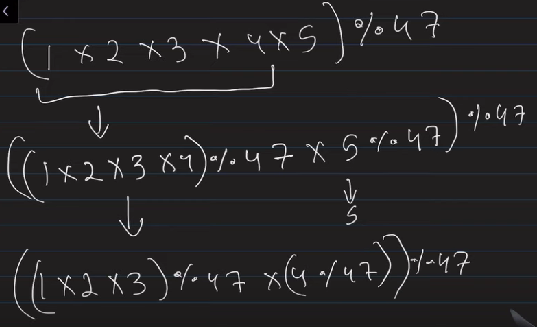 (1 × 2 × 3 × 4 × 5) % 47
((1 × 2 × 3 × 4) % 47 × 5 % 47) % 47
5
((1 × 2 × 3) % 47 × (4 % 47)) % 47